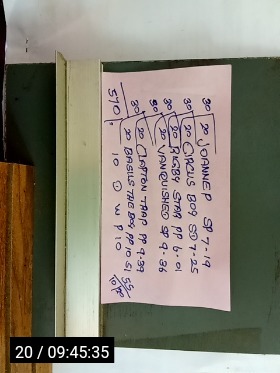 30 20 JOANNEP SP 7-19
30 20 CIRCUS BOY SP 7-25
30 20 RIGBY STAR PP 6-01
30 20 VANQUISHED SP 9-36
30 20 CLAPTON TRAP PP 9-39
20 BASILS THE BOY PP 10-51
510 10 D W P 10
20 / 09:45:35